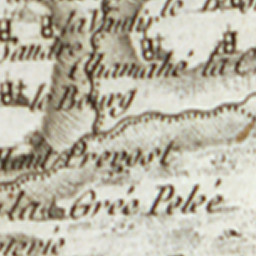 la Vaudir
le B
Vaudre
Chamahé la C
le Bourg
Haut Prevost
la Greé Peleé